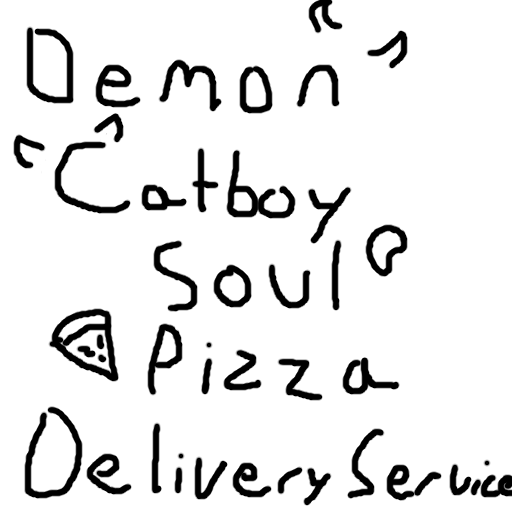 Demon
Catboy
Soul
Pizza
Delivery Service